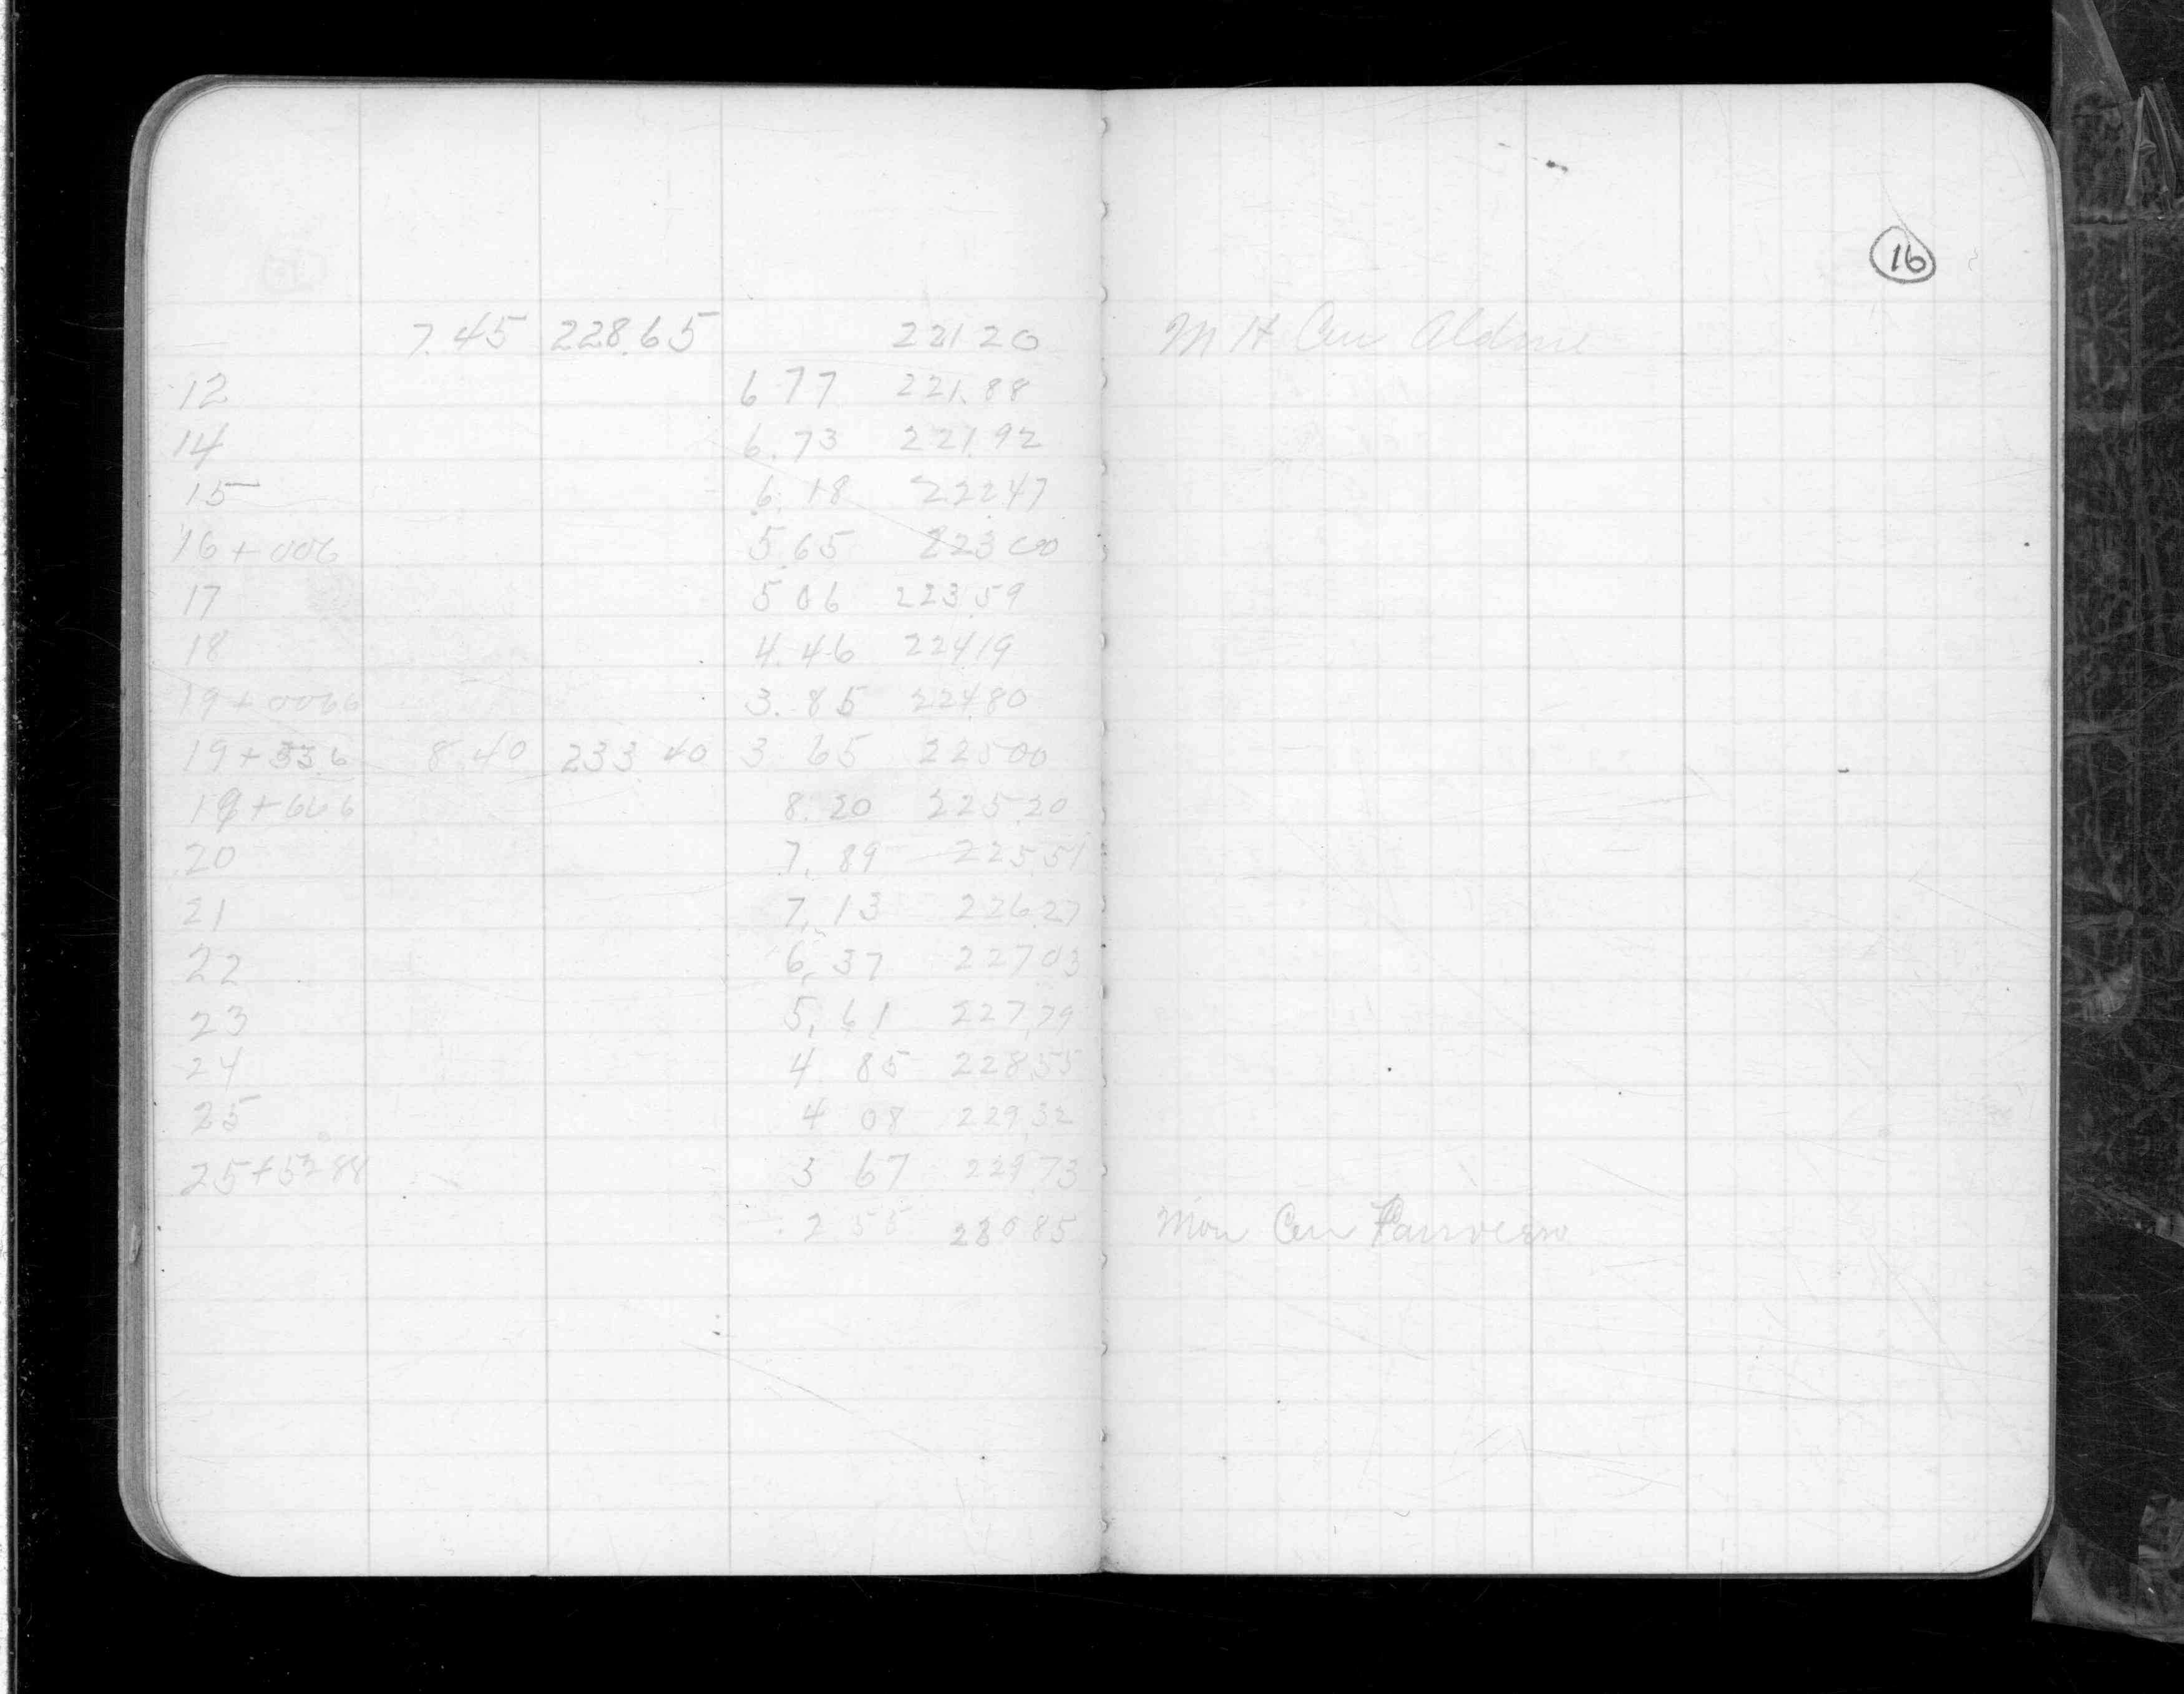 16
7.45 228.65 221 20 M H Cen Aldine
12 6 77 221.88
14 6.73 221.92
15 6.18 222.47
16 + 006 5.65 223 00
17 5 06 223.59
18 4.46 224.19
19 + 0066 3.85 224.80
19 + 33.6 8.40 233.40 3 65 225 00
19 + 666 8.20 225.20
20 7.89 225.51
21 7.13 226.27
22 6.37 227 03
23 5.61 227.79
24 4 85 228.55
25 4 08 229.32
25 + 5288 3 67 229 73
2 55 230 85 Mon Cen